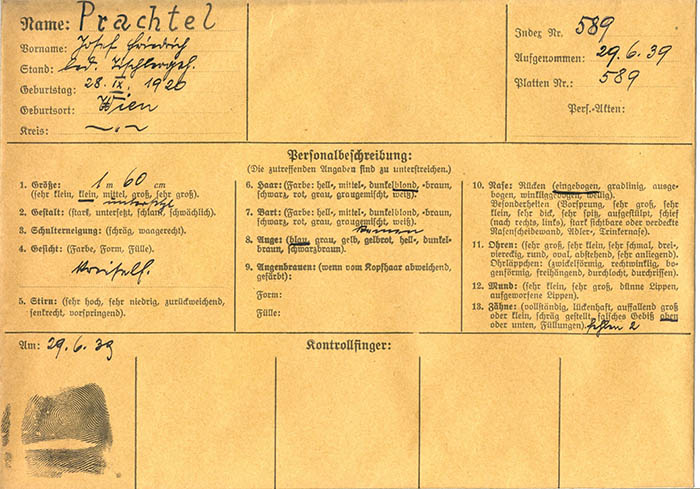 Name: Prachtel
Vorname: Josef Friedrich
Stand: led.
Geburtstag: 28. IX. 1920
Geburtsort: Wien
Kreis:
Index Nr. 589
Aufgenommen: 29.6.39
Platten Nr.: 589
Pers.-Akten:
Personalbeschreibung:
(Die zutreffenden Angaben sind zu unterstreichen.)
1. Größe: 1 m 60 cm
(sehr klein, klein, mittel, groß, sehr groß).
untersetzt
2. Gestalt: (stark, untersetzt, schlank, schwächlich).
3. Schulterneigung: (schräg, waagerecht).
4. Gesicht: (Farbe, Form, Fülle).
5. Stirn: (sehr hoch, sehr niedrig, zurückweichend,
senkrecht, vorspringend).
6. Haar: (Farbe: hell-, mittel-, dunkelblond, -braun,
schwarz, rot, grau, graugemischt, weiß).
7. Bart: (Farbe: hell-, mittel-, dunkelblond, -braun,
schwarz, rot, grau, graugemischt, weiß).
8. Auge: (blau, grau, gelb, gelbrot, hell-, dunkel-
braun, schwarzbraun).
9. Augenbrauen: (wenn vom Kopfhaar abweichend,
gefärbt):
Form:
Fülle:
10. Nase: Rücken (eingebogen, gradlinig, ausge-
bogen, winkliggebogen, wellig).
Besonderheiten (Vorsprung, sehr groß, sehr
klein, sehr dick, sehr spitz, aufgestülpt, schief
(nach rechts, links), stark sichtbare oder verdeckte
Nasenscheidwand, Adler-, Trinkernase).
11. Ohren: (sehr groß, sehr klein, sehr schmal, drei-,
viereckig, rund, oval, abstehend, sehr anliegend).
Ohrläppchen: (zwickelförmig, rechtwinklig, bo-
genförmig, freihängend, durchlocht, durchrissen).
12. Mund: (sehr klein, sehr groß, dünne Lippen,
aufgeworfene Lippen).
13. Zähne: (vollständig, lückenhaft, auffallend groß
oder klein, schräg gestellt, falsches Gebiß oben
oder unten, Füllungen). fehlen 2
Am: 29.6.39
Kontrollfinger: